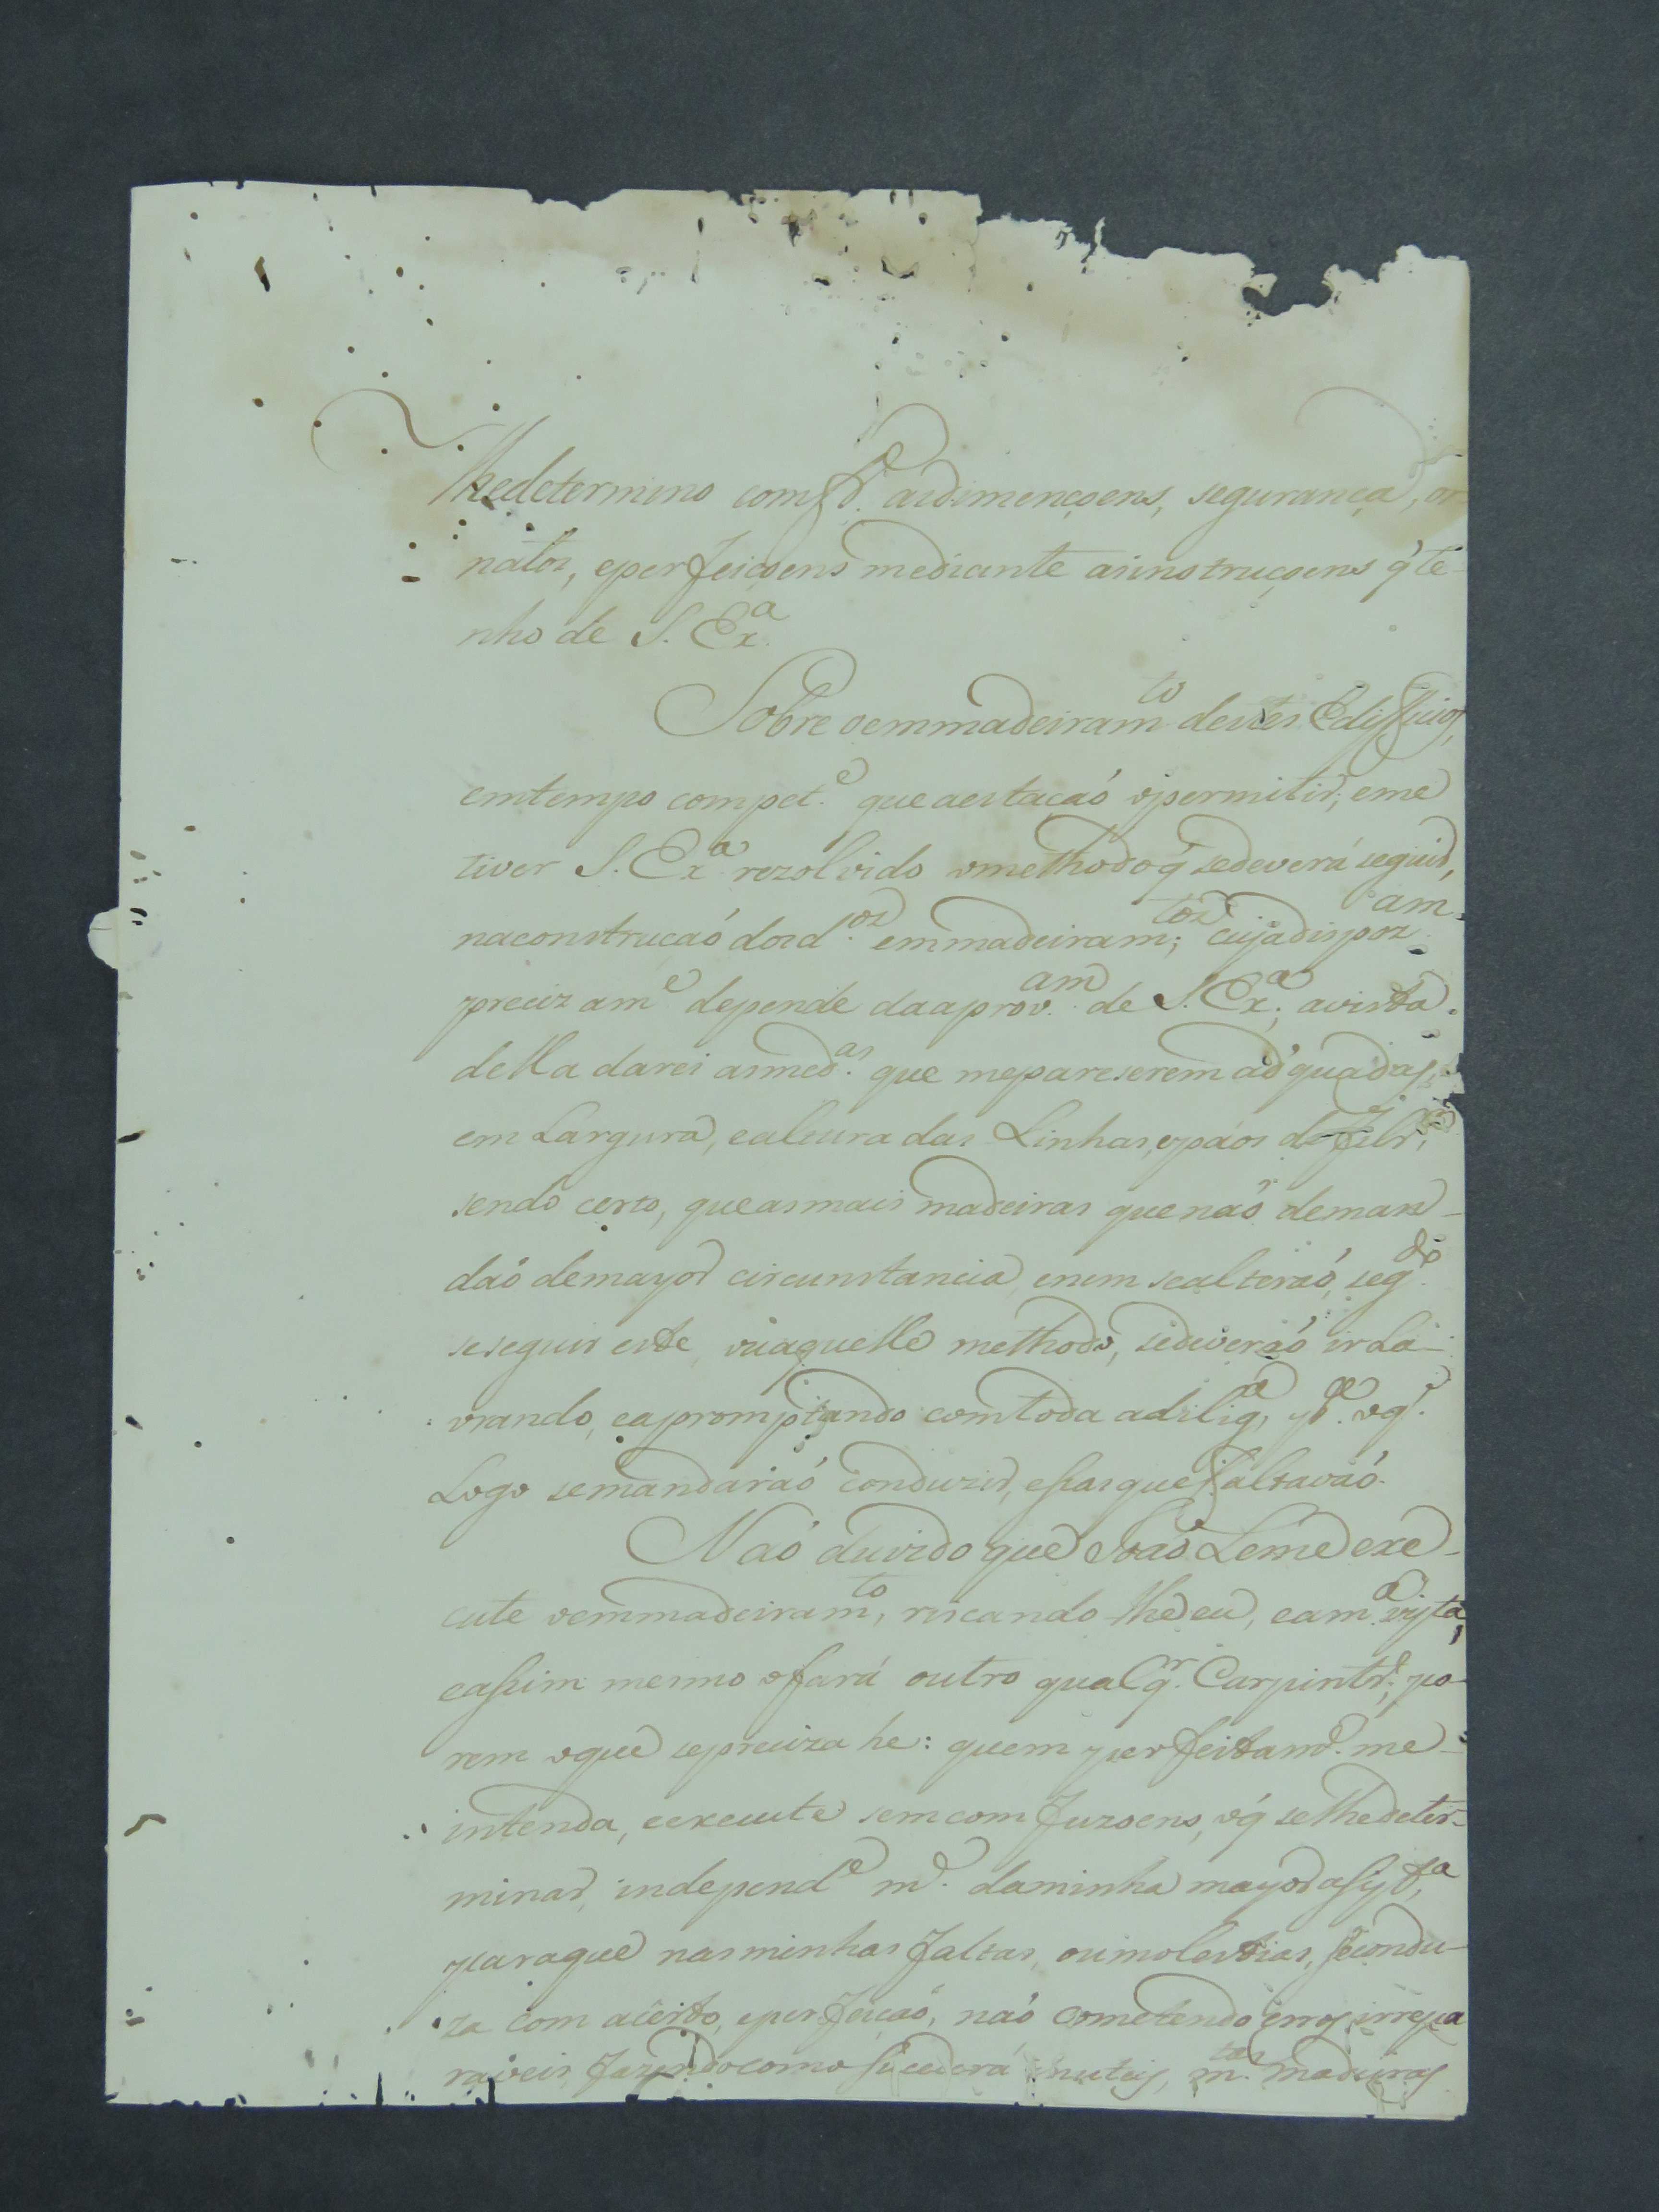 lhedetermino com asdimençoens, segurança, or
natos, eperfeiçoens mediante asinstruçoens q̃ te-
nho de S. Exª
Sobre oemmadeiramto destes Edifficios,
emtempo compet.e que aestaçaó opermitir; eme
tiver S. Exª rezolvido omethodo q̃ sedeverá seguir,
naconstrucaó dosd.os emmadeiram;tos cujadispozam.
precizame depende daaprov.am de S. Exª; avista
della darei asmed.as que mepareserem ad'quadas,
em Largura, ealtura das Linhas, epáos de
sendo certo, queasmais madeiras que naó deman-
daó demayor circunstancia, enem sealteraó, seg.do
seseguir este, ouaquelle methodo, sedeveraó ir La-
vrando, eapromptando comtoda adilig,ª p.ª oq.e
Logo semandaraó conduzir, essasque faltavaó.
Naó duvido que Joaó Leme exe-
cute oemmadeiramto, riscando lhe eu, eam.ª vista,
eassim mesmo ofará outro qualq.r Carpintr.o; po-
rem oque sepreciza he: quem perfeitam.e me
intenda, eexecute semcomfuzoens, oq̃ selhedeter-
minar, independe m.e daminha mayor asist,ª
paraque nasminhas faltas, oumolestias, secondu-
za com aceito, eperfeiçaó, naó cometendo erros irrepa
raveis, fazendocomo sucederá inuteis, m.tas madeiras